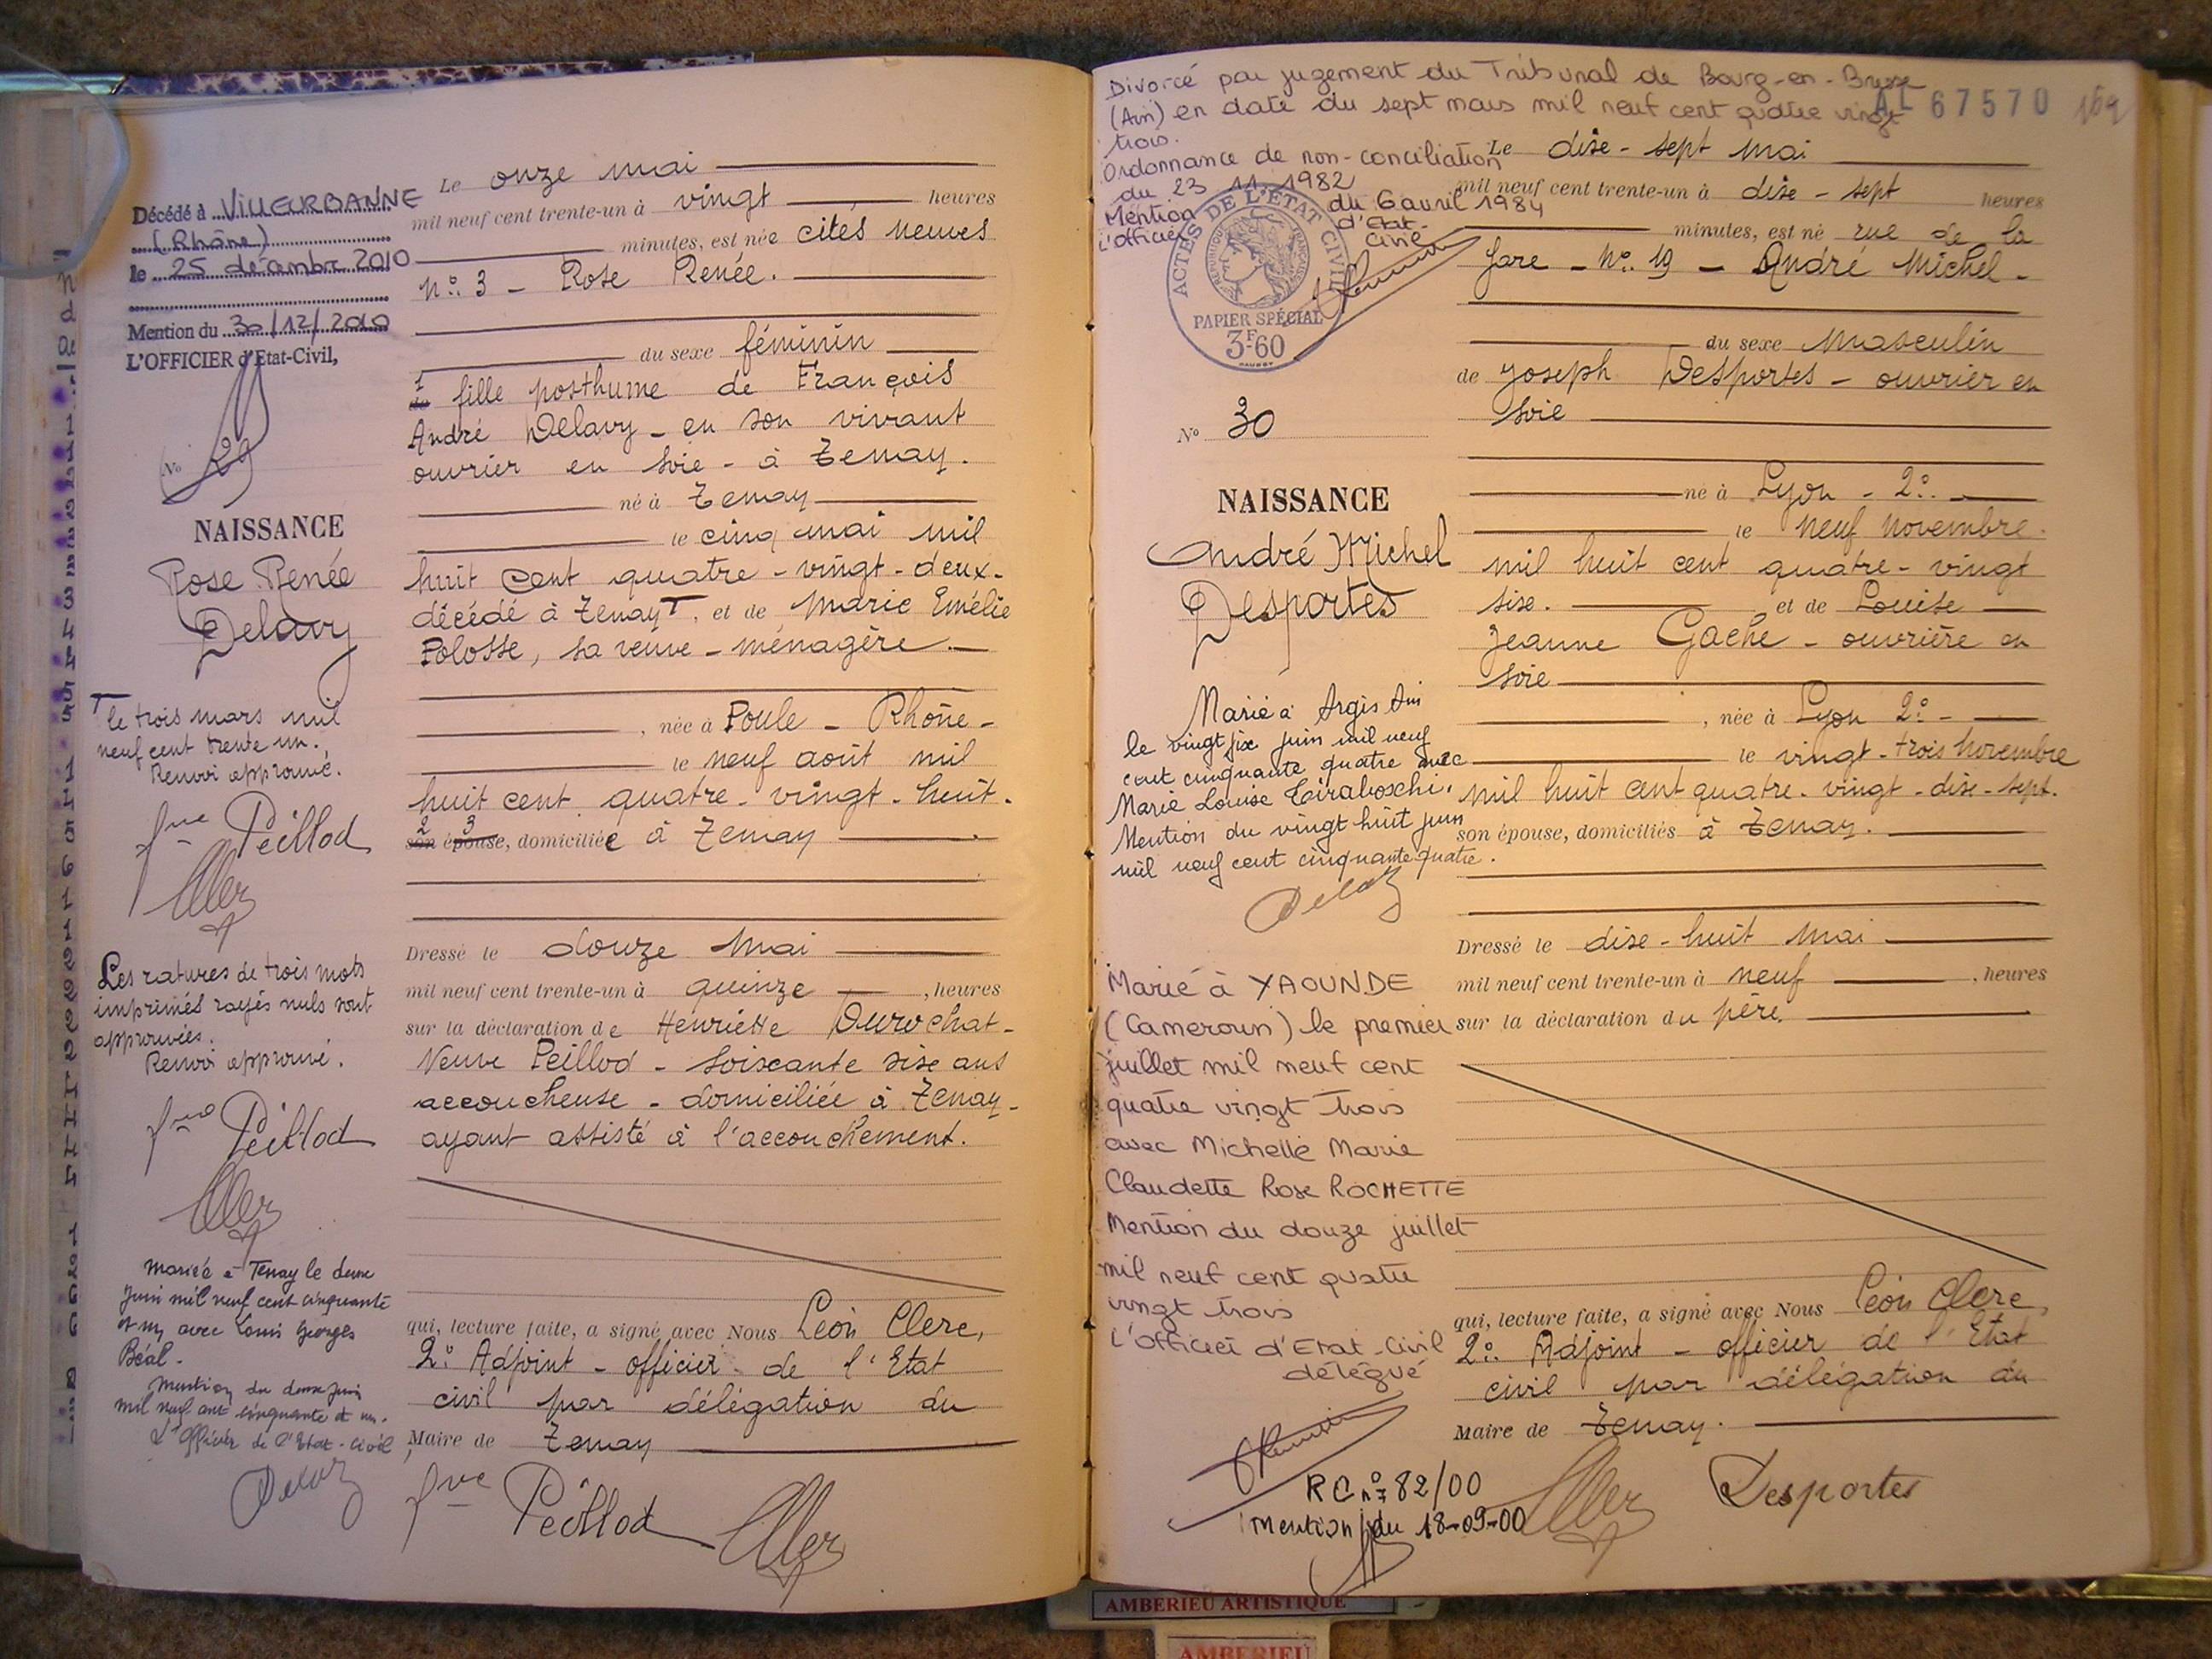 Décédé à VILLEURBANNE
(Rhône)
le 25 décembre 2010
Mention du 30/12/2010
L'OFFICIER d'Etat-Civil,
No 29
NAISSANCE
Rose Renée
Delavy
T le trois mars mil
neuf cent trente un.,
Renvoi approuvé.
fve Peillod
Les ratures de trois mots
imprimés rayés nuls sont
approuvées.
Renvoi approuvé.
fve Peillod
Mariée à Tenay le deux
juin mil neuf cent cinquante
et un avec Louis Georges
Béal.
Mention du deux juin
mil neuf cent cinquante et un.
L'Officier de l'Etat-civil
Le onze mai
mil neuf cent trente-un à vingt heures
minutes, est née cités neuves
No. 3 - Rose Renée.
du sexe féminin
1 du fille posthume de François
André Delavy - en son vivant
ouvrier en soie - à Tenay.
né à Tenay
le cinq mai mil
huit cent quatre-vingt-deux-
décédé à Tenay T, et de Marie Emélie
Polosse, sa veuve - ménagère.
, née à Poule - Rhône -
le neuf août mil
huit cent quatre-vingt-huit.
2 3
son épouse, domiciliée à Tenay
Dressé le douze mai
mil neuf cent trente-un à quinze , heures
sur la déclaration de Henriette Durochat-
Veuve Peillod - soixante sise ans
accoucheuse - domiciliée à Tenay -
ayant assisté à l'accouchement.
qui, lecture faite, a signé avec Nous Léon Clerc,
2o. Adjoint - officier de l'Etat
civil par délégation du
Maire de Tenay
fve Peillod
Divorcé par jugement du Tribunal de Bourg-en-Bresse
(Ain) en date du sept mars mil neuf cent quatre vingt
trois.
Ordonnance de non-conciliation
du 23 11 1982
Mention du 6 avril 1984
L'Officier d'Etat-Civil
AL 67570 169
ACTES DE L'ETAT CIVIL
RÉPUBLIQUE FRANÇAISE
PAPIER SPÉCIAL
3F60
No 30
NAISSANCE
André Michel
Desportes
Marié à Argis Ain
le vingt six juin mil neuf
cent cinquante quatre avec
Marie Louise Tiraboschi.
Mention du vingt huit juin
mil neuf cent cinquante quatre.
Marié à YAOUNDE
(Cameroun) le premier
juillet mil neuf cent
quatre vingt trois
avec Michelle Marie
Claudette Rose ROCHETTE
Mention du douze juillet
mil neuf cent quatre
vingt trois
L'officier d'Etat-Civil
délégué
RC n° 82/00
Mention du 18-09-00
Le dise-sept mai
mil neuf cent trente-un à dise-sept heures
minutes, est né rue de la
Gare - No. 19 - André Michel -
du sexe masculin
de Joseph Desportes - ouvrier en
soie
né à Lyon - 2o.
le neuf novembre
mil huit cent quatre-vingt
sise. et de Louise
Jeanne Gache - ouvrière en
soie
, née à Lyon 2o -
le vingt-trois novembre
mil huit cent quatre-vingt-dise-sept.
son épouse, domiciliés à Tenay.
Dressé le dise-huit mai
mil neuf cent trente-un à neuf , heures
sur la déclaration du père
qui, lecture faite, a signé avec Nous Léon Clerc,
2o. Adjoint - officier de l'Etat
civil par délégation du
Maire de Tenay.
Desportes
AMBERIEU ARTISTIQUE
AMBERIEU